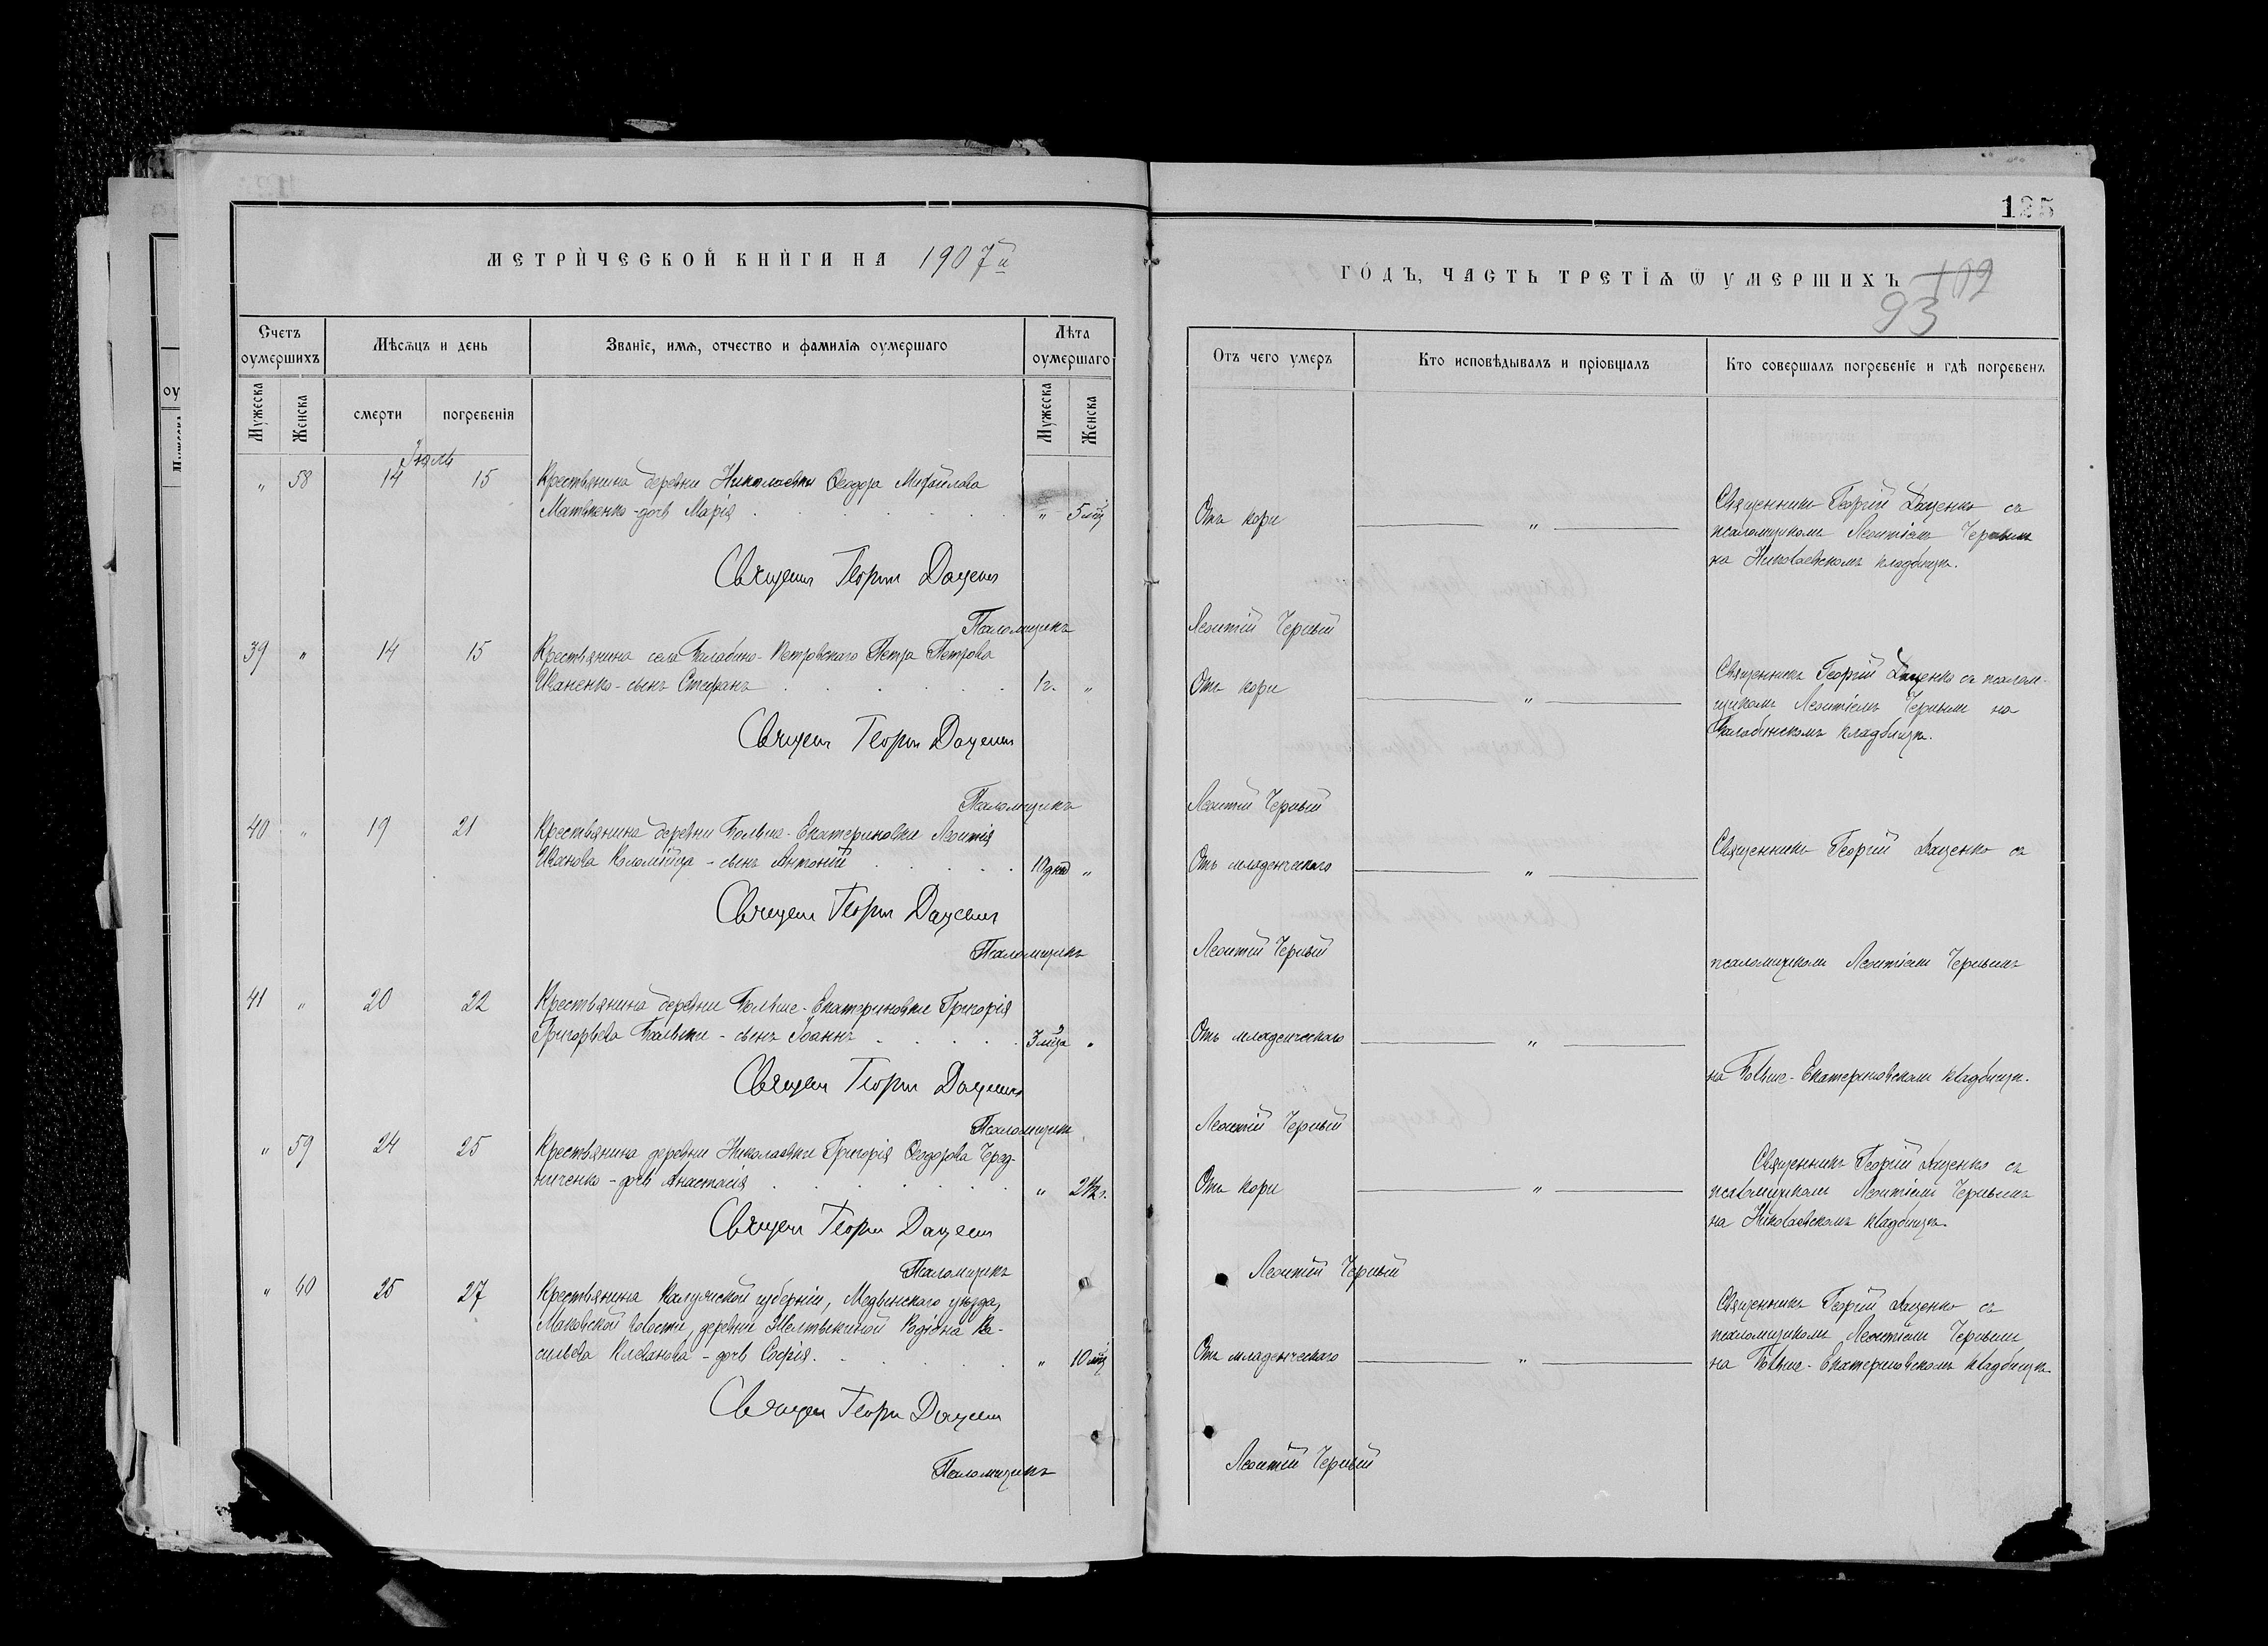 125
МЕТРИЧЕСКОЙ КНИГИ НА 1907й
ГОДЪ, ЧАСТЬ ТРЕТІЯ Ѿ УМЕРШИХЪ
109
93
Счетъ оумершихъ
Мѣсяцъ и день
Званіе, имя, отчество и фамилія оумершаго
Лѣта оумершаго
Мужеска
Женска
смерти
погребенія
Мужеска
Женска
Отъ чего умеръ
Кто исповѣдывалъ и пріобщалъ
Кто совершалъ погребеніе и гдѣ погребенъ
Іюль
" 58 14 15 Крестьянина деревни Николаевки Ѳеодора Михайлова
Матвіенко - дочь Марія " 5 мѣц
Отъ кори "
Священникъ Георгій Даценко съ
псаломщикомъ Леонтіемъ Чернымъ
на Николаевскомъ кладбищѣ.
Священ Георгій Даценко
Псаломщикъ Леонтій Черный
39 " 14 15 Крестьянина села Балабино-Петровскаго Петра Петрова
Иваненко - сынъ Стефанъ 1 г. "
Отъ кори "
Священникъ Георгій Даценко съ псалом-
щикомъ Леонтіемъ Чернымъ на
Балабинскомъ кладбищѣ.
Священ Георгій Даценко
Псаломщикъ Леонтій Черный
40 " 19 21 Крестьянина деревни Больше-Екатериновки Леонтія
Иванова Коломійца - сынъ Антоній 10 дней "
Отъ младенческаго "
Священникъ Георгій Даценко съ
Священ Георгій Даценко
Псаломщикъ Леонтій Черный
псаломщикомъ Леонтіемъ Чернымъ
41 " 20 22 Крестьянина деревни Больше-Екатериновки Григорія
Григорьева Бальки - сынъ Іоаннъ 3 мѣца "
Отъ младенческаго "
на Больше-Екатериновскомъ кладбищѣ.
Священ Георгій Даценко
Псаломщикъ Леонтій Черный
" 59 24 25 Крестьянина деревни Николаевки Григорія Ѳеодорова Черед-
ниченко - дочь Анастасія " 2½ г.
Отъ кори "
Священникъ Георгій Даценко съ
псаломщикомъ Леонтіемъ Чернымъ
на Николаевскомъ кладбищѣ.
Священ Георгій Даценко
Псаломщикъ Леонтій Черный
" 60 25 27 Крестьянина Калужской губерніи, Медынскаго уѣзда,
Маковской волости, деревни Желтыкиной Родіона Ва-
сильева Клеванова - дочь Софія. " 10 мѣц
Отъ младенческаго "
Священникъ Георгій Даценко съ
псаломщикомъ Леонтіемъ Чернымъ
на Больше-Екатериновскомъ кладбищѣ.
Священ Георгій Даценко
Псаломщикъ Леонтій Черный